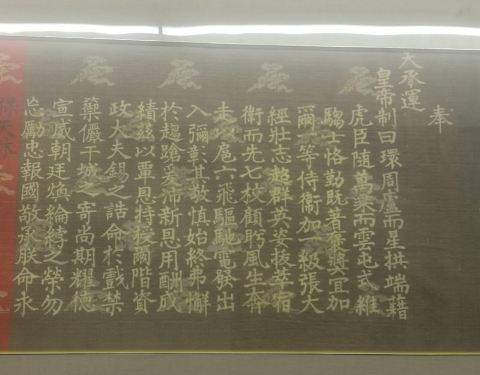 奉
天承運
皇帝制曰環周廬而星拱端藉
虎臣随萬乘而雲屯式維
騶士恪勤既著褒奬宜加
爾一等侍衛加一級張大
經壯志超群英姿拔萃宿
衛而先七校顧盻風生奔
走以扈六飛驅馳電發出
入彌彰其敬慎始終弗懈
於趨蹌爰沛新恩用酬成
績茲以覃恩特授爾階資
政大夫錫之誥命於戲禁
儼干城之寄尚期耀德
宣威朝廷煥綸綍之榮勿
忘勵忠報國敬承朕命永